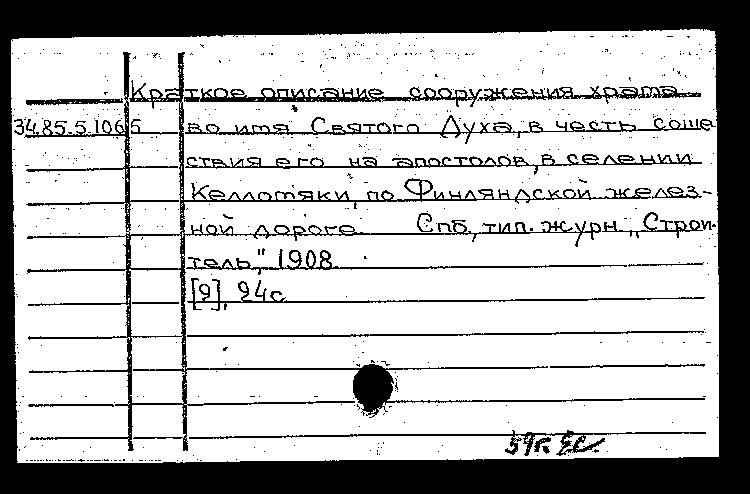 Краткое описание сооружения храма
34.85.5.1065 во имя Святого Духа, в честь соше-
ствия его на апостолов, в селении
Келломяки, по Финляндской желез-
ной дороге Спб, тип. журн. „Строи-
тель", 1908
[2], 24с